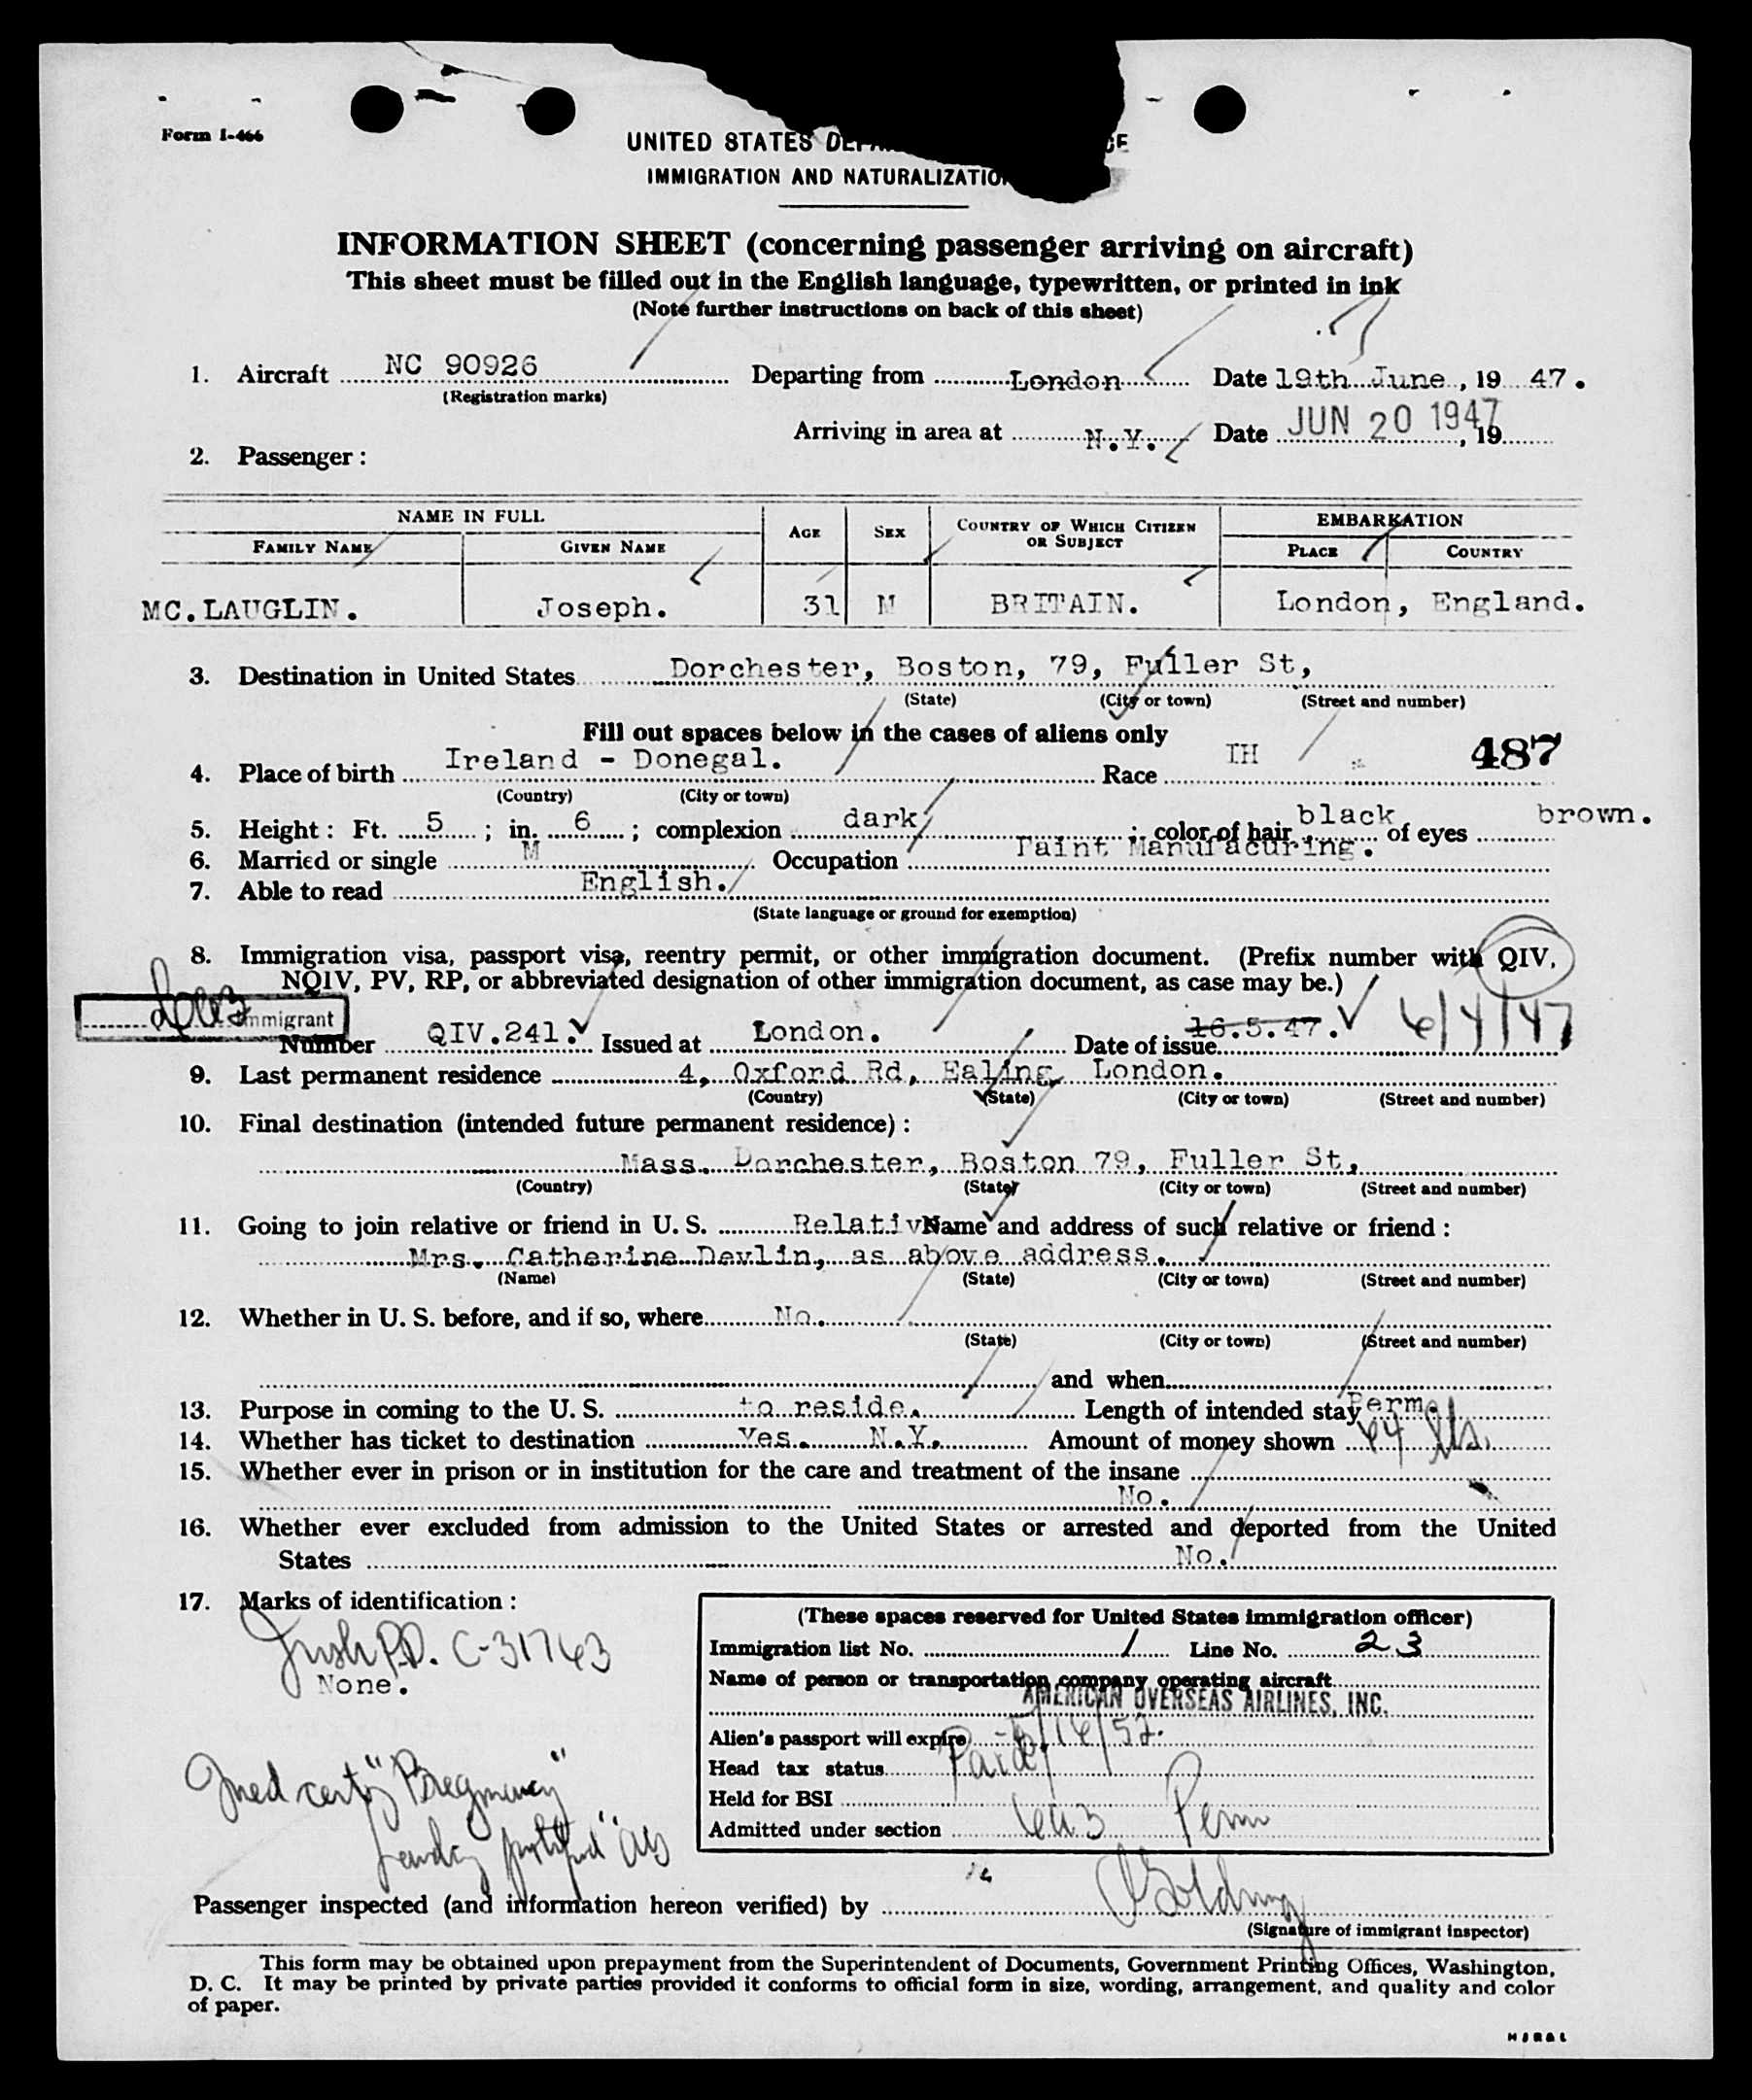 Form I-466
UNITED STATES
IMMIGRATION AND
INFORMATION SHEET (concerning passenger arriving on aircraft)
This sheet must be filled out in the English language, typewritten, or printed in ink
(Note further instructions on back of this sheet)
1. Aircraft NC 90926 Departing from London Date 19th June, 19 47.
(Registration marks)
Arriving in area at N.Y. Date JUN 20 1947, 19
2. Passenger :
NAME IN FULL AGE SEX COUNTRY OF WHICH CITIZEN OR SUBJECT EMBARKATION
FAMILY NAME GIVEN NAME PLACE COUNTRY
MC.LAUGLIN. Joseph. 31 M BRITAIN. London, England.
3. Destination in United States Dorchester, Boston, 79, Fuller St,
(State) (City or town) (Street and number)
Fill out spaces below in the cases of aliens only
4. Place of birth Ireland - Donegal. Race IH 487
(Country) (City or town)
5. Height : Ft. 5 ; in. 6 ; complexion dark ; color of hair black of eyes brown.
6. Married or single M Occupation Paint Manufacuring.
7. Able to read English.
(State language or ground for exemption)
8. Immigration visa, passport visa, reentry permit, or other immigration document. (Prefix number with QIV,
NQIV, PV, RP, or abbreviated designation of other immigration document, as case may be.)
Immigrant
Number QIV.241. Issued at London. Date of issue 16.5.47. 6/4/47
9. Last permanent residence 4, Oxford Rd, Ealing London.
(Country) (State) (City or town) (Street and number)
10. Final destination (intended future permanent residence) :
Mass. Dorchester, Boston 79, Fuller St,
(Country) (State) (City or town) (Street and number)
11. Going to join relative or friend in U. S. Relativ Name and address of such relative or friend :
Mrs. Catherine Devlin, as above address.
(Name) (State) (City or town) (Street and number)
12. Whether in U. S. before, and if so, where No.
(State) (City or town) (Street and number)
and when
13. Purpose in coming to the U. S. to reside. Length of intended stay Perm.
14. Whether has ticket to destination Yes. N.Y. Amount of money shown
15. Whether ever in prison or in institution for the care and treatment of the insane
No.
16. Whether ever excluded from admission to the United States or arrested and deported from the United
States No.
17. Marks of identification :
Irish P.P. C-31763
None.
Med cert "Pregnancy"
(These spaces reserved for United States immigration officer)
Immigration list No. 1 Line No. 23
Name of person or transportation company operating aircraft
AMERICAN OVERSEAS AIRLINES, INC.
Alien's passport will expire
Head tax status Paid
Held for BSI
Admitted under section 6a3 Perm
Passenger inspected (and information hereon verified) by
(Signature of immigrant inspector)
This form may be obtained upon prepayment from the Superintendent of Documents, Government Printing Offices, Washington,
D. C. It may be printed by private parties provided it conforms to official form in size, wording, arrangement, and quality and color
of paper.